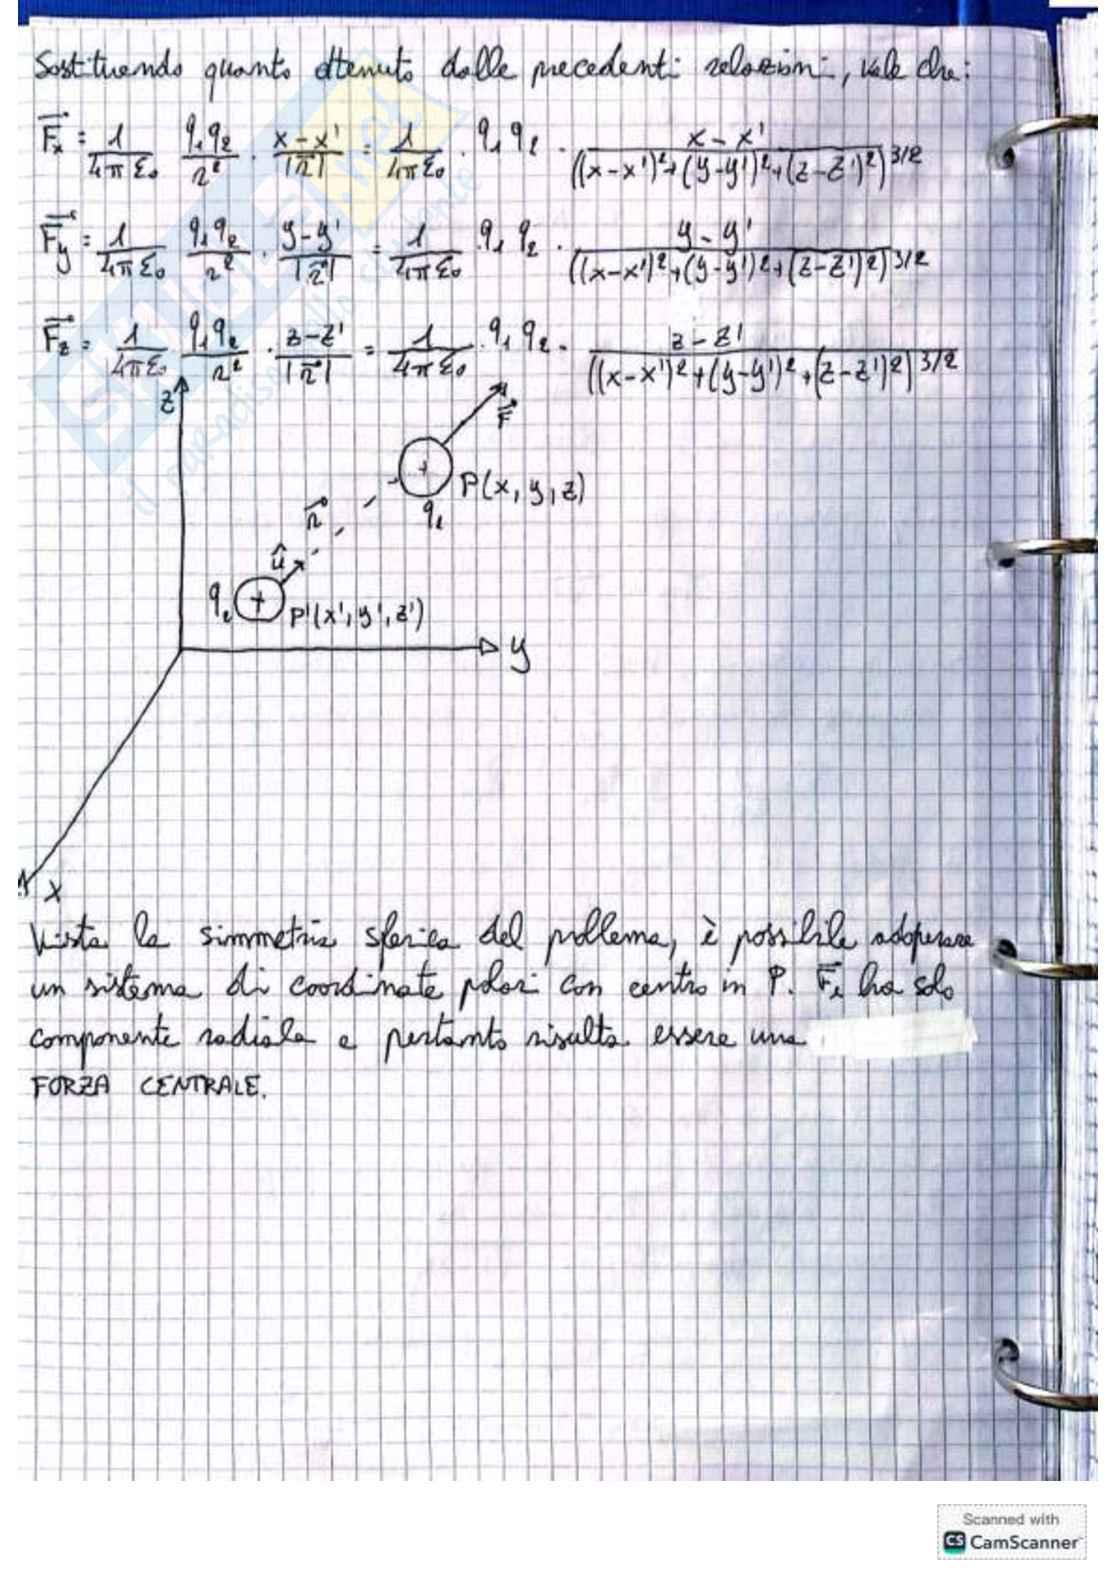 Sostituendo quanto ottenuto dalle precedenti relazioni, vale che:
F⃗x = 1/(4πε₀) q₁q₂/r² · (x-x')/|r⃗| = 1/(4πε₀) · q₁q₂ · (x-x')/((x-x')²+(y-y')²+(z-z')²)^3/2
F⃗y = 1/(4πε₀) q₁q₂/r² · (y-y')/|r⃗| = 1/(4πε₀) · q₁q₂ · (y-y')/((x-x')²+(y-y')²+(z-z')²)^3/2
F⃗z = 1/(4πε₀) q₁q₂/r² · (z-z')/|r⃗| = 1/(4πε₀) · q₁q₂ · (z-z')/((x-x')²+(y-y')²+(z-z')²)^3/2
z
F⃗
+
P(x, y, z)
r⃗
û
+
P'(x', y', z')
y
x
Vista la simmetria sferica del problema, è possibile adoperare
un sistema di coordinate polari con centro in P. F⃗ ha solo
componente radiale e pertanto risulta essere una
FORZA CENTRALE.
il paradiso dello studente
Scanned with
CS CamScanner